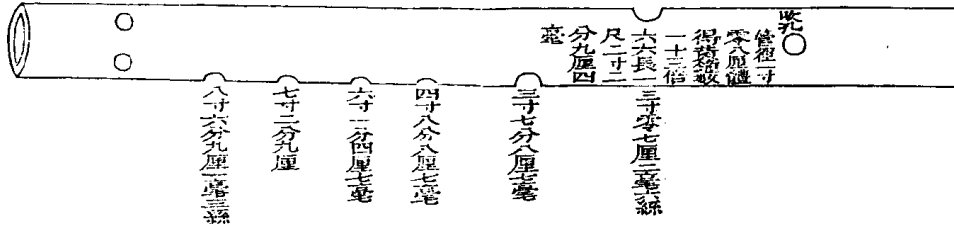 吹孔
管徑一寸
零八厘體
得黃鍾
一十三倍
六六長一
尺二寸二
分九厘四
毫
三寸零七厘二毫六絲
三寸七分八厘七毫
四寸八分八厘七毫
六寸一分四厘七毫
七寸二分九厘
八寸六分九厘一毫三絲